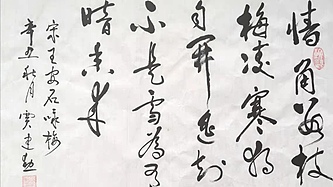 墙角数枝
梅凌寒独
自开遥知
不是雪为有
暗香来
宋王安石咏梅
辛丑秋月贾建勋